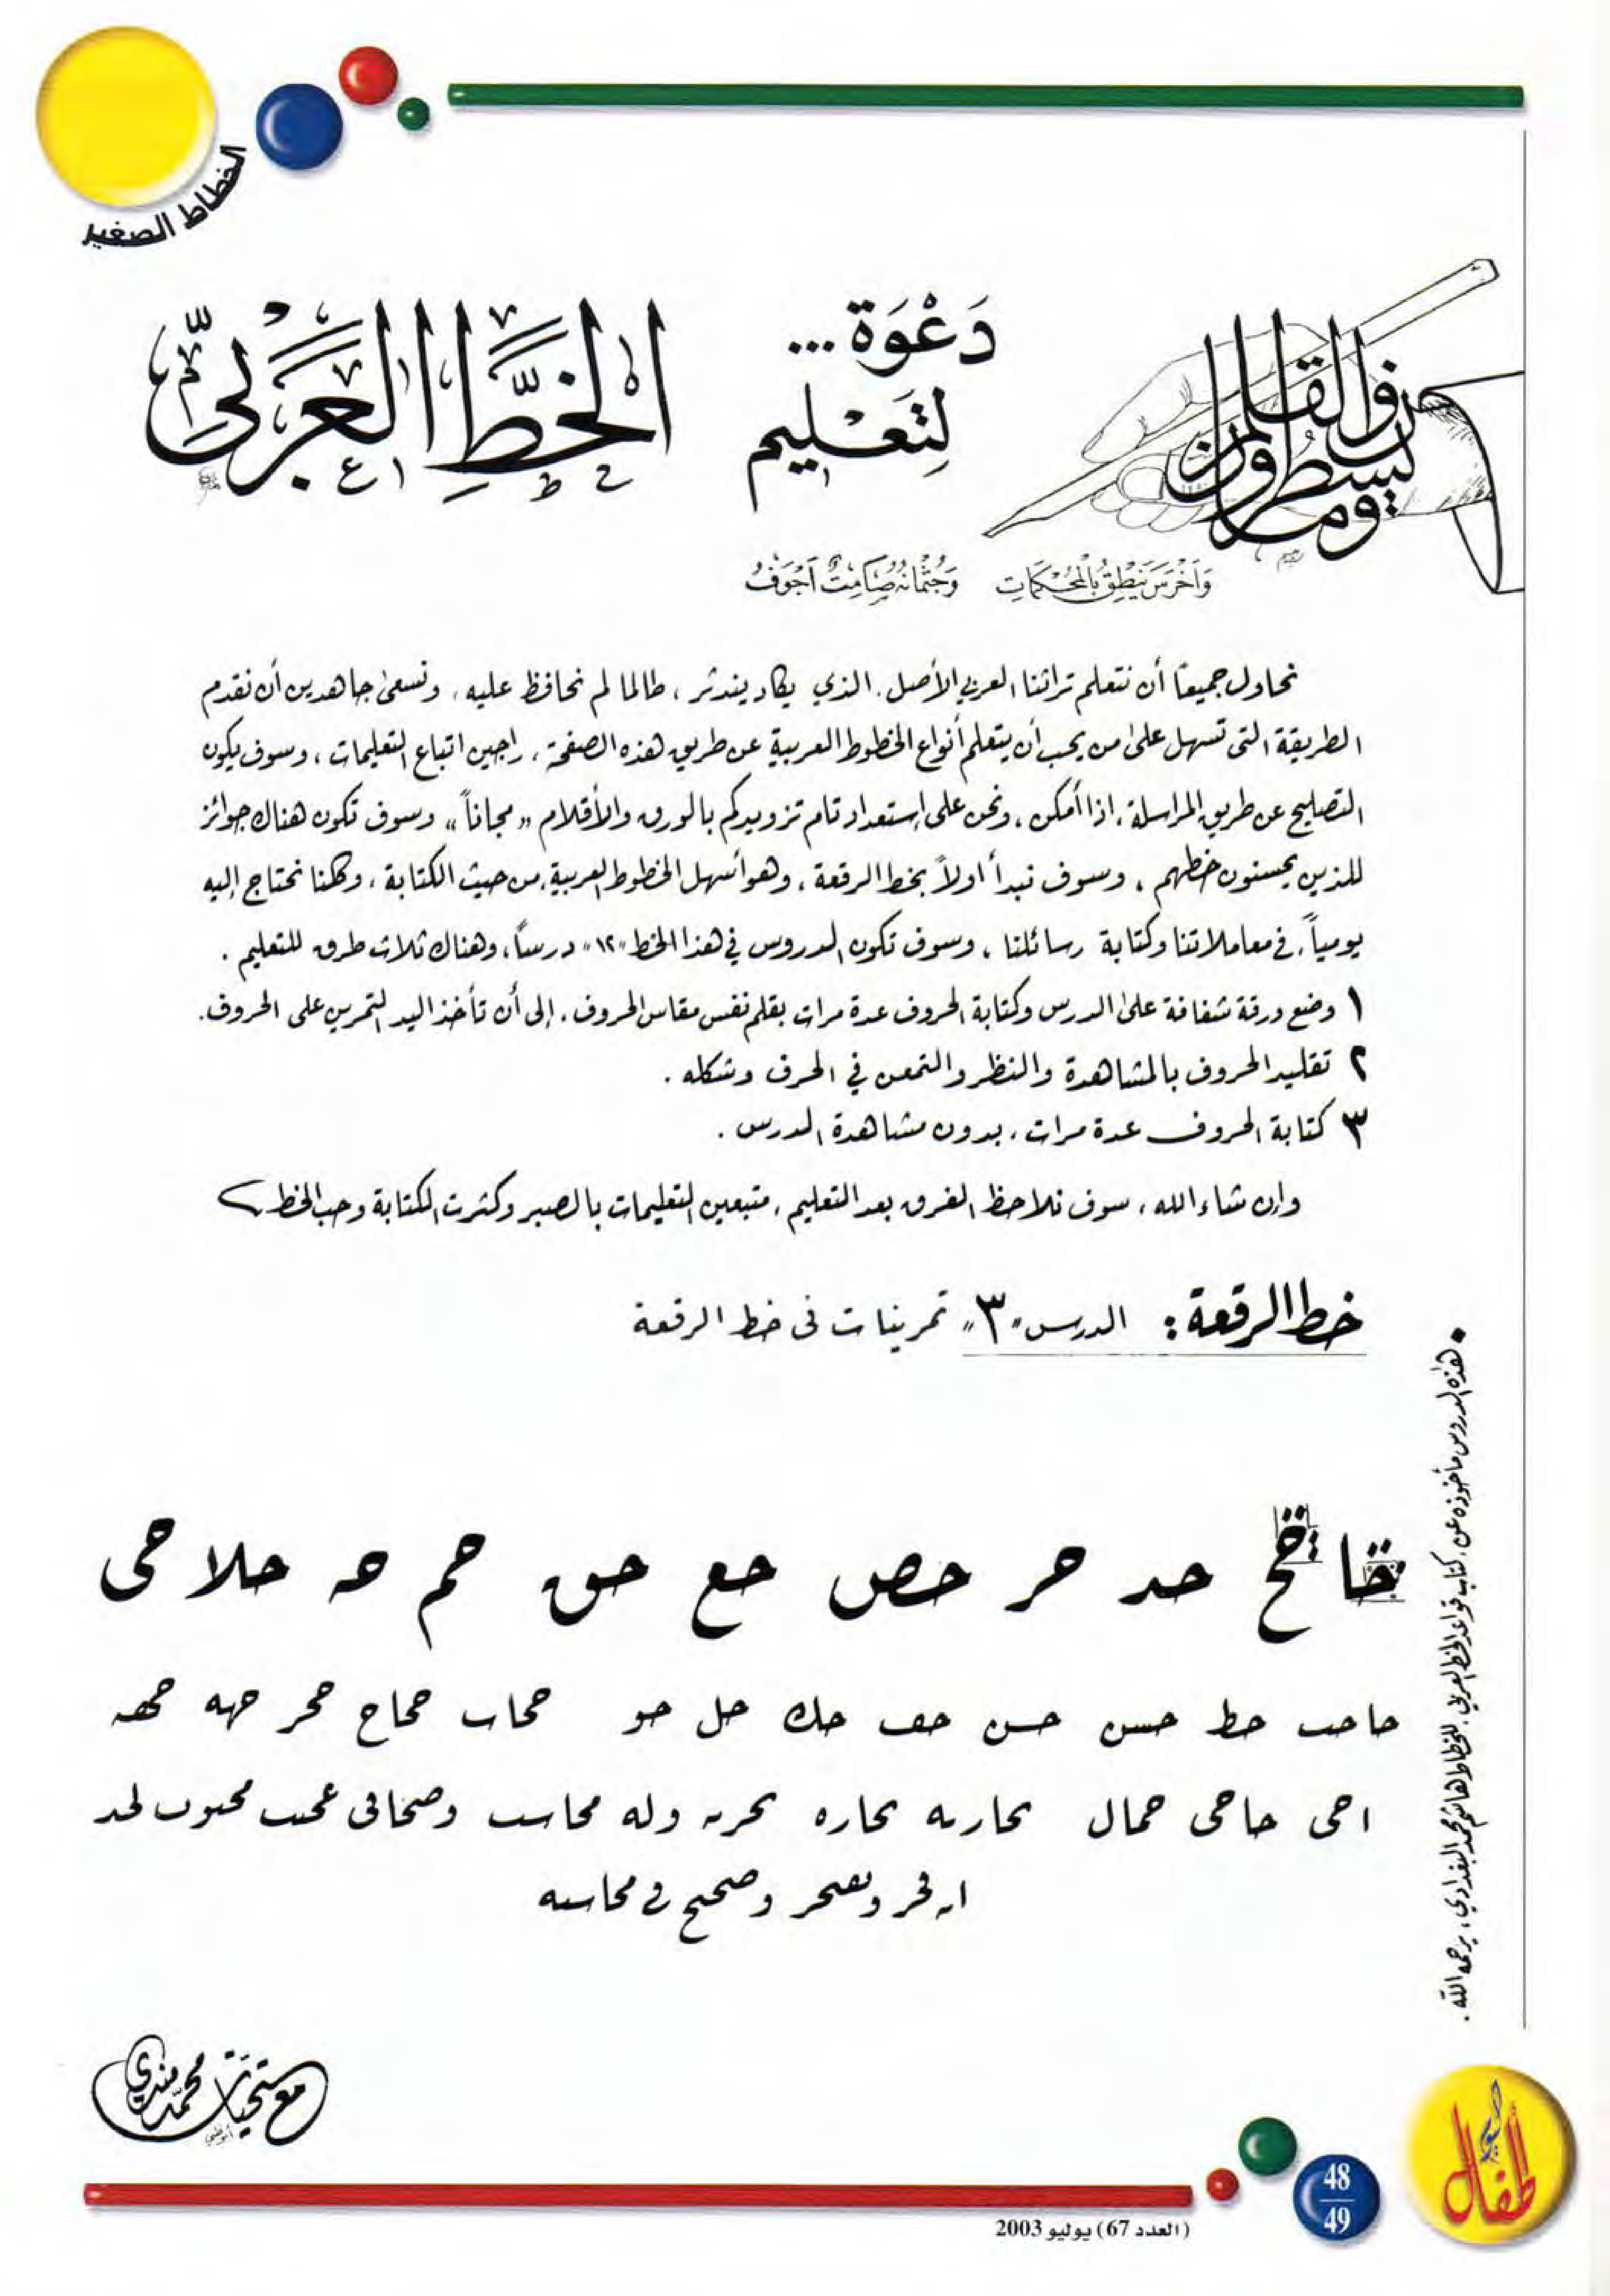 الخطاط الصغير
ن والقلم وما يسطرون
دَعْوَة...
لِتَعْليم
الخطِّ العَرَبيِّ
وَأَخْرَسَ يَنْطِقُ بِالْمُحْكَمَاتِ وَجُثْمَانُهُ صَامِتٌ أَجْوَفُ
نحاول جميعاً أن نتعلم تراثنا العربي الأصيل. الذي يكاد يندثر، طالما لم نحافظ عليه، ونسعى جاهدين أن نقدم
الطريقة التي تسهل على من يحب أن يتعلم أنواع الخطوط العربية عن طريق هذه الصفحة، راجين اتباع التعليمات، وسوف يكون
التصليح عن طريق المراسلة، إذا أمكن، ونحن على إستعداد تام تزويدكم بالورق والأقلام «مجاناً» وسوف تكون هناك جوائز
للذين يحسنون خطهم، وسوف نبدأ أولاً بخط الرقعة، وهو أسهل الخطوط العربية، من حيث الكتابة، وكلنا نحتاج إليه
يومياً، في معاملاتنا وكتابة رسائلنا، وسوف تكون الدروس في هذا الخط «١٢» درساً، وهناك ثلاث طرق للتعليم.
١ وضع ورقة شفافة على الدرس وكتابة الحروف عدة مرات بقلم نفس مقاس الحروف، إلى أن تأخذ اليد التمرين على الحروف.
٢ تقليد الحروف بالمشاهدة والنظر والتمعن في الحرف وشكله.
٣ كتابة الحروف عدة مرات، بدون مشاهدة الدرس.
وإن شاء الله، سوف نلاحظ الفرق بعد التعليم، متبعين التعليمات بالصبر وكثرت الكتابة وحب الخط
خط الرقعة: الدرس «٣» تمرينات في خط الرقعة
حا حح حد حر حص حع حق حم حه حلا حى
حا حب حط حسن حسن حف حك حل حو
احى حاحى حمال
هذه الدروس مأخوذه عن، كتاب قواعد الخط العربي. للخطاط هاشم محمد البغدادي، يرحمه الله.
مع تحيات محمد مندي
أبوظبي
48
49
(العدد 67) يوليو 2003